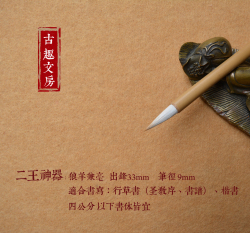 古趣文房
二王神器 狼羊兼毫 出鋒33mm 筆徑9mm
適合書寫：行草書（圣教序、書譜）、楷書
四公分以下書体皆宜